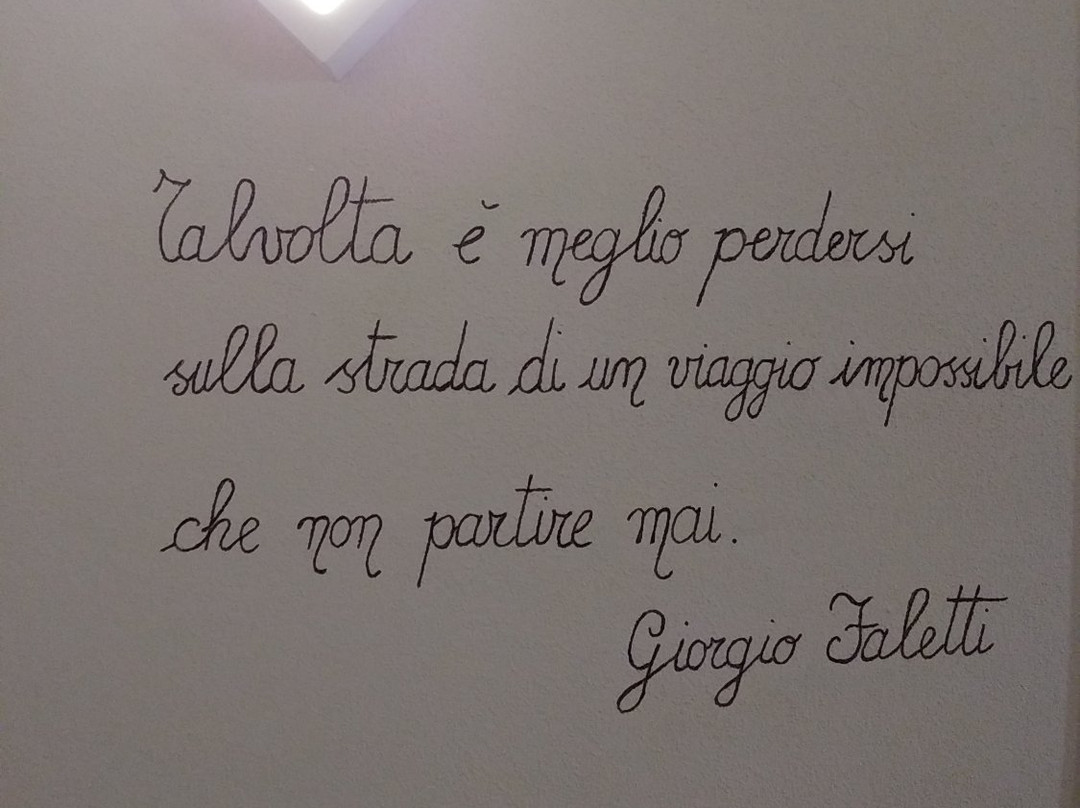 Talvolta è meglio perdersi
sulla strada di un viaggio impossibile
che non partire mai.
Giorgio Faletti